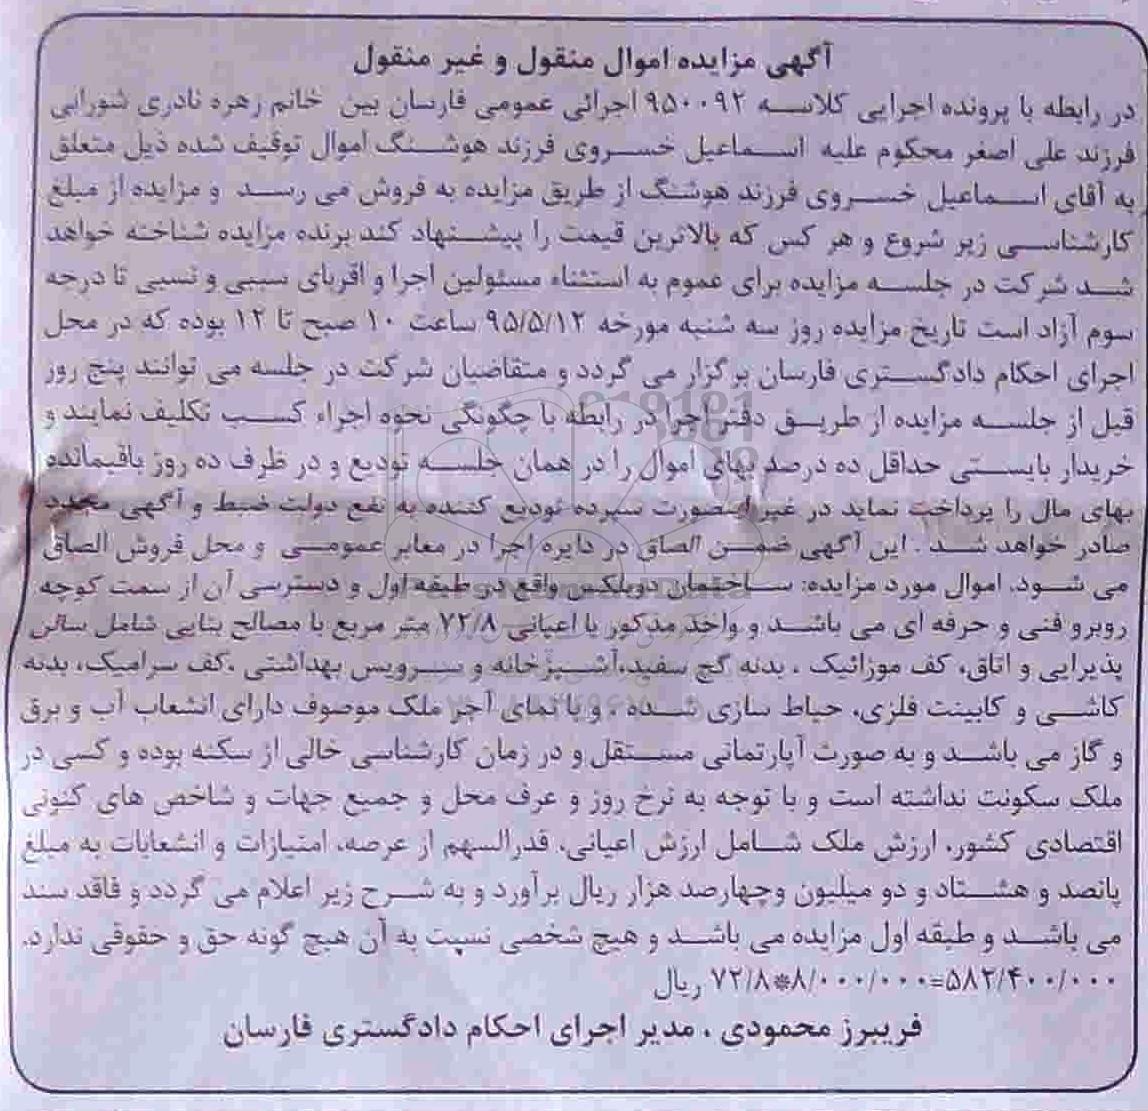 آگهی مزایده اموال منقول و غیر منقول
در رابطه با پرونده اجرایی کلاسه ۹۵۰۰۹۲ اجرائی عمومی فارسان بین خانم زهره نادری شورابی
فرزند علی اصغر محکوم علیه اسماعیل خسروی فرزند هوشنگ اموال توقیف شده ذیل متعلق
به آقای اسماعیل خسروی فرزند هوشنگ از طریق مزایده به فروش می رسد و مزایده از مبلغ
کارشناسی زیر شروع و هر کس که بالاترین قیمت را پیشنهاد کند برنده مزایده شناخته خواهد
شد شرکت در جلسه مزایده برای عموم به استثناء مسئولین اجرا و اقربای سببی و نسبی تا درجه
سوم آزاد است تاریخ مزایده روز سه شنبه مورخه ۹۵/۵/۱۲ ساعت ۱۰ صبح تا ۱۲ بوده که در محل
اجرای احکام دادگستری فارسان برگزار می گردد و متقاضیان شرکت در جلسه می توانند پنج روز
قبل از جلسه مزایده از طریق دفتر اجرا در رابطه با چگونگی نحوه اجراء کسب تکلیف نمایند و
خریدار بایستی حداقل ده درصد بهای اموال را در همان جلسه تودیع و در ظرف ده روز باقیمانده
بهای مال را پرداخت نماید در غیر اینصورت سپرده تودیع کننده به نفع دولت ضبط و آگهی مجدد
صادر خواهد شد . این آگهی ضمن الصاق در دایره اجرا در معابر عمومی و محل فروش الصاق
می شود. اموال مورد مزایده: ساختمان دوبلکس واقع در طبقه اول و دسترسی آن از سمت کوچه
روبرو فنی و حرفه ای می باشد و واحد مذکور با اعیانی ۷۲/۸ متر مربع با مصالح بنایی شامل سالن
پذیرایی و اتاق، کف موزائیک ، بدنه گچ سفید،آشپزخانه و سرویس بهداشتی ،کف سرامیک، بدنه
کاشی و کابینت فلزی، حیاط سازی شده ، و با نمای آجر ملک موصوف دارای انشعاب آب و برق
و گاز می باشد و به صورت آپارتمانی مستقل و در زمان کارشناسی خالی از سکنه بوده و کسی در
ملک سکونت نداشته است و با توجه به نرخ روز و عرف محل و جمیع جهات و شاخص های کنونی
اقتصادی کشور، ارزش ملک شامل ارزش اعیانی، قدرالسهم از عرصه، امتیازات و انشعابات به مبلغ
پانصد و هشتاد و دو میلیون وچهارصد هزار ریال برآورد و به شرح زیر اعلام می گردد و فاقد سند
می باشد و طبقه اول مزایده می باشد و هیچ شخصی نسبت به آن هیچ گونه حق و حقوقی ندارد.
۷۲/۸*۸/۰۰۰/۰۰۰=۵۸۲/۴۰۰/۰۰۰ ریال
فریبرز محمودی ، مدیر اجرای احکام دادگستری فارسان